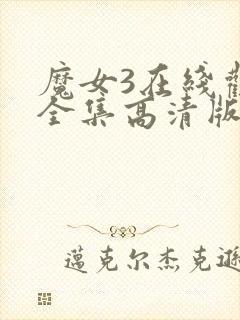 魔女3在綫
全集高清版
邁克尔杰克遜